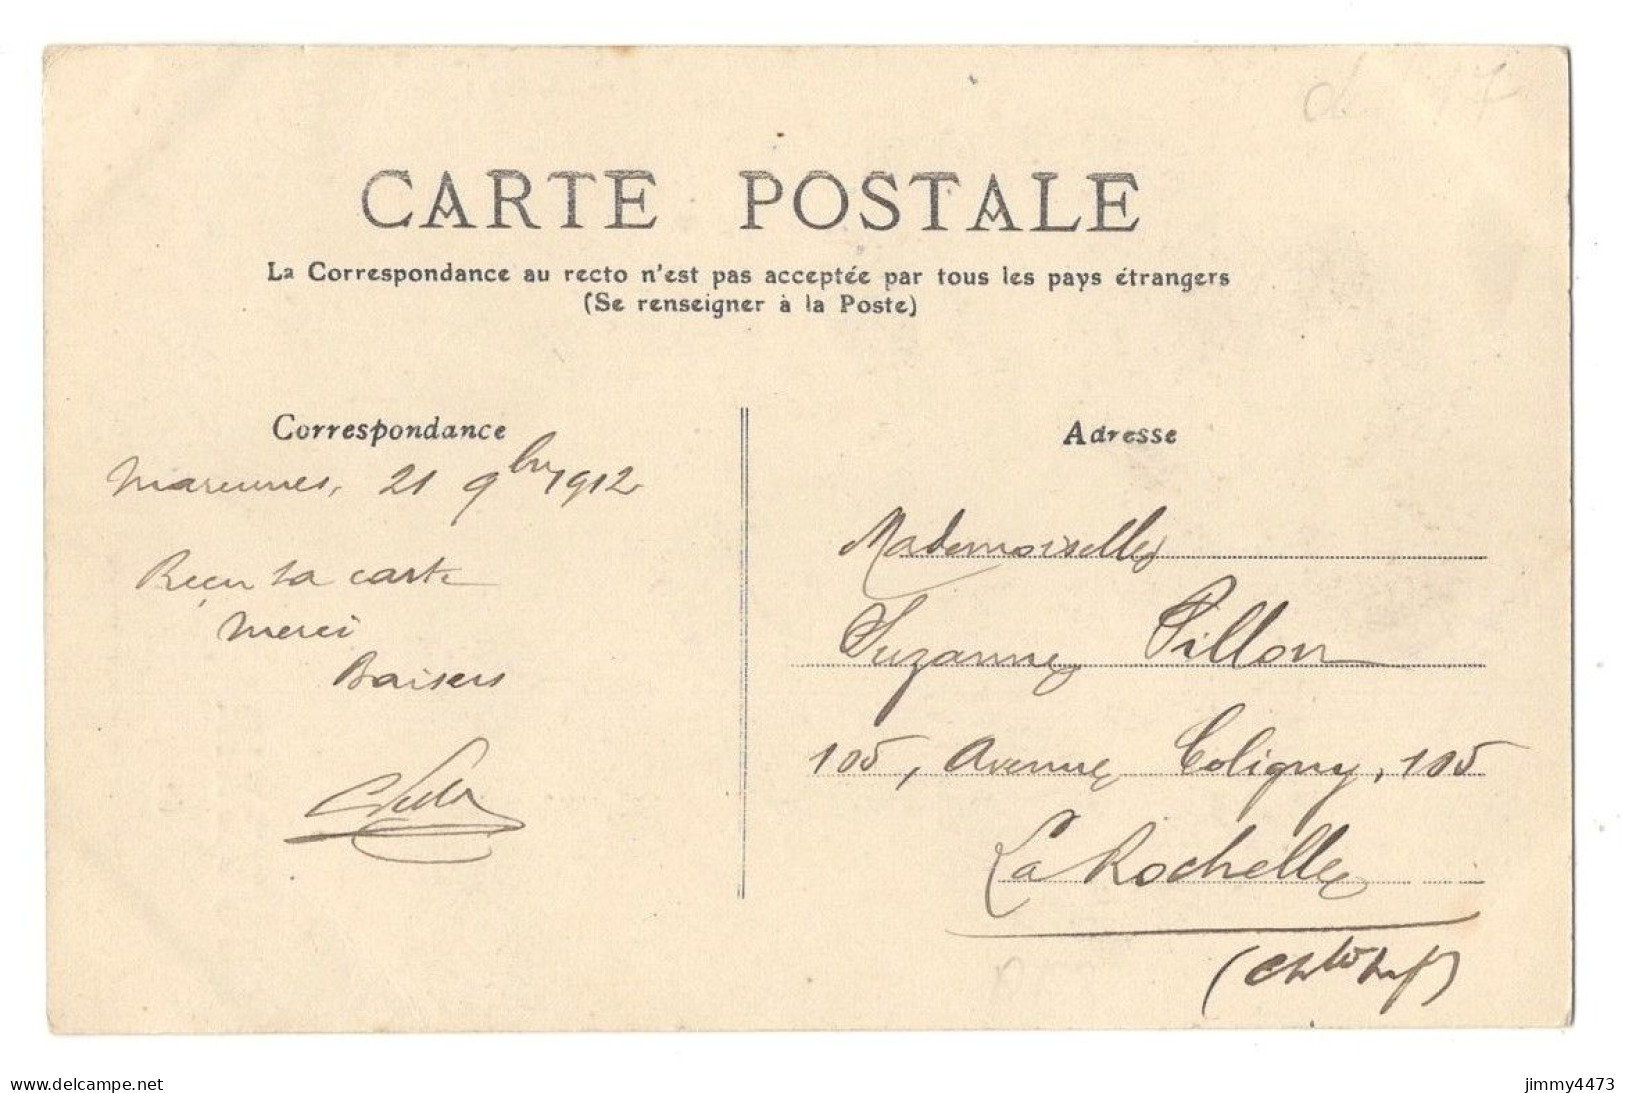 CARTE POSTALE
La Correspondance au recto n'est pas acceptée par tous les pays étrangers
(Se renseigner à la Poste)
Correspondance
Marennes, 21 9bre 1912
Reçu ta carte
Merci
Baisers
Adresse
Mademoiselle
Suzanne Pillon
105, Avenue Coligny, 105
La Rochelle
(Chte Infre)
www.delcampe.net
jimmy4473